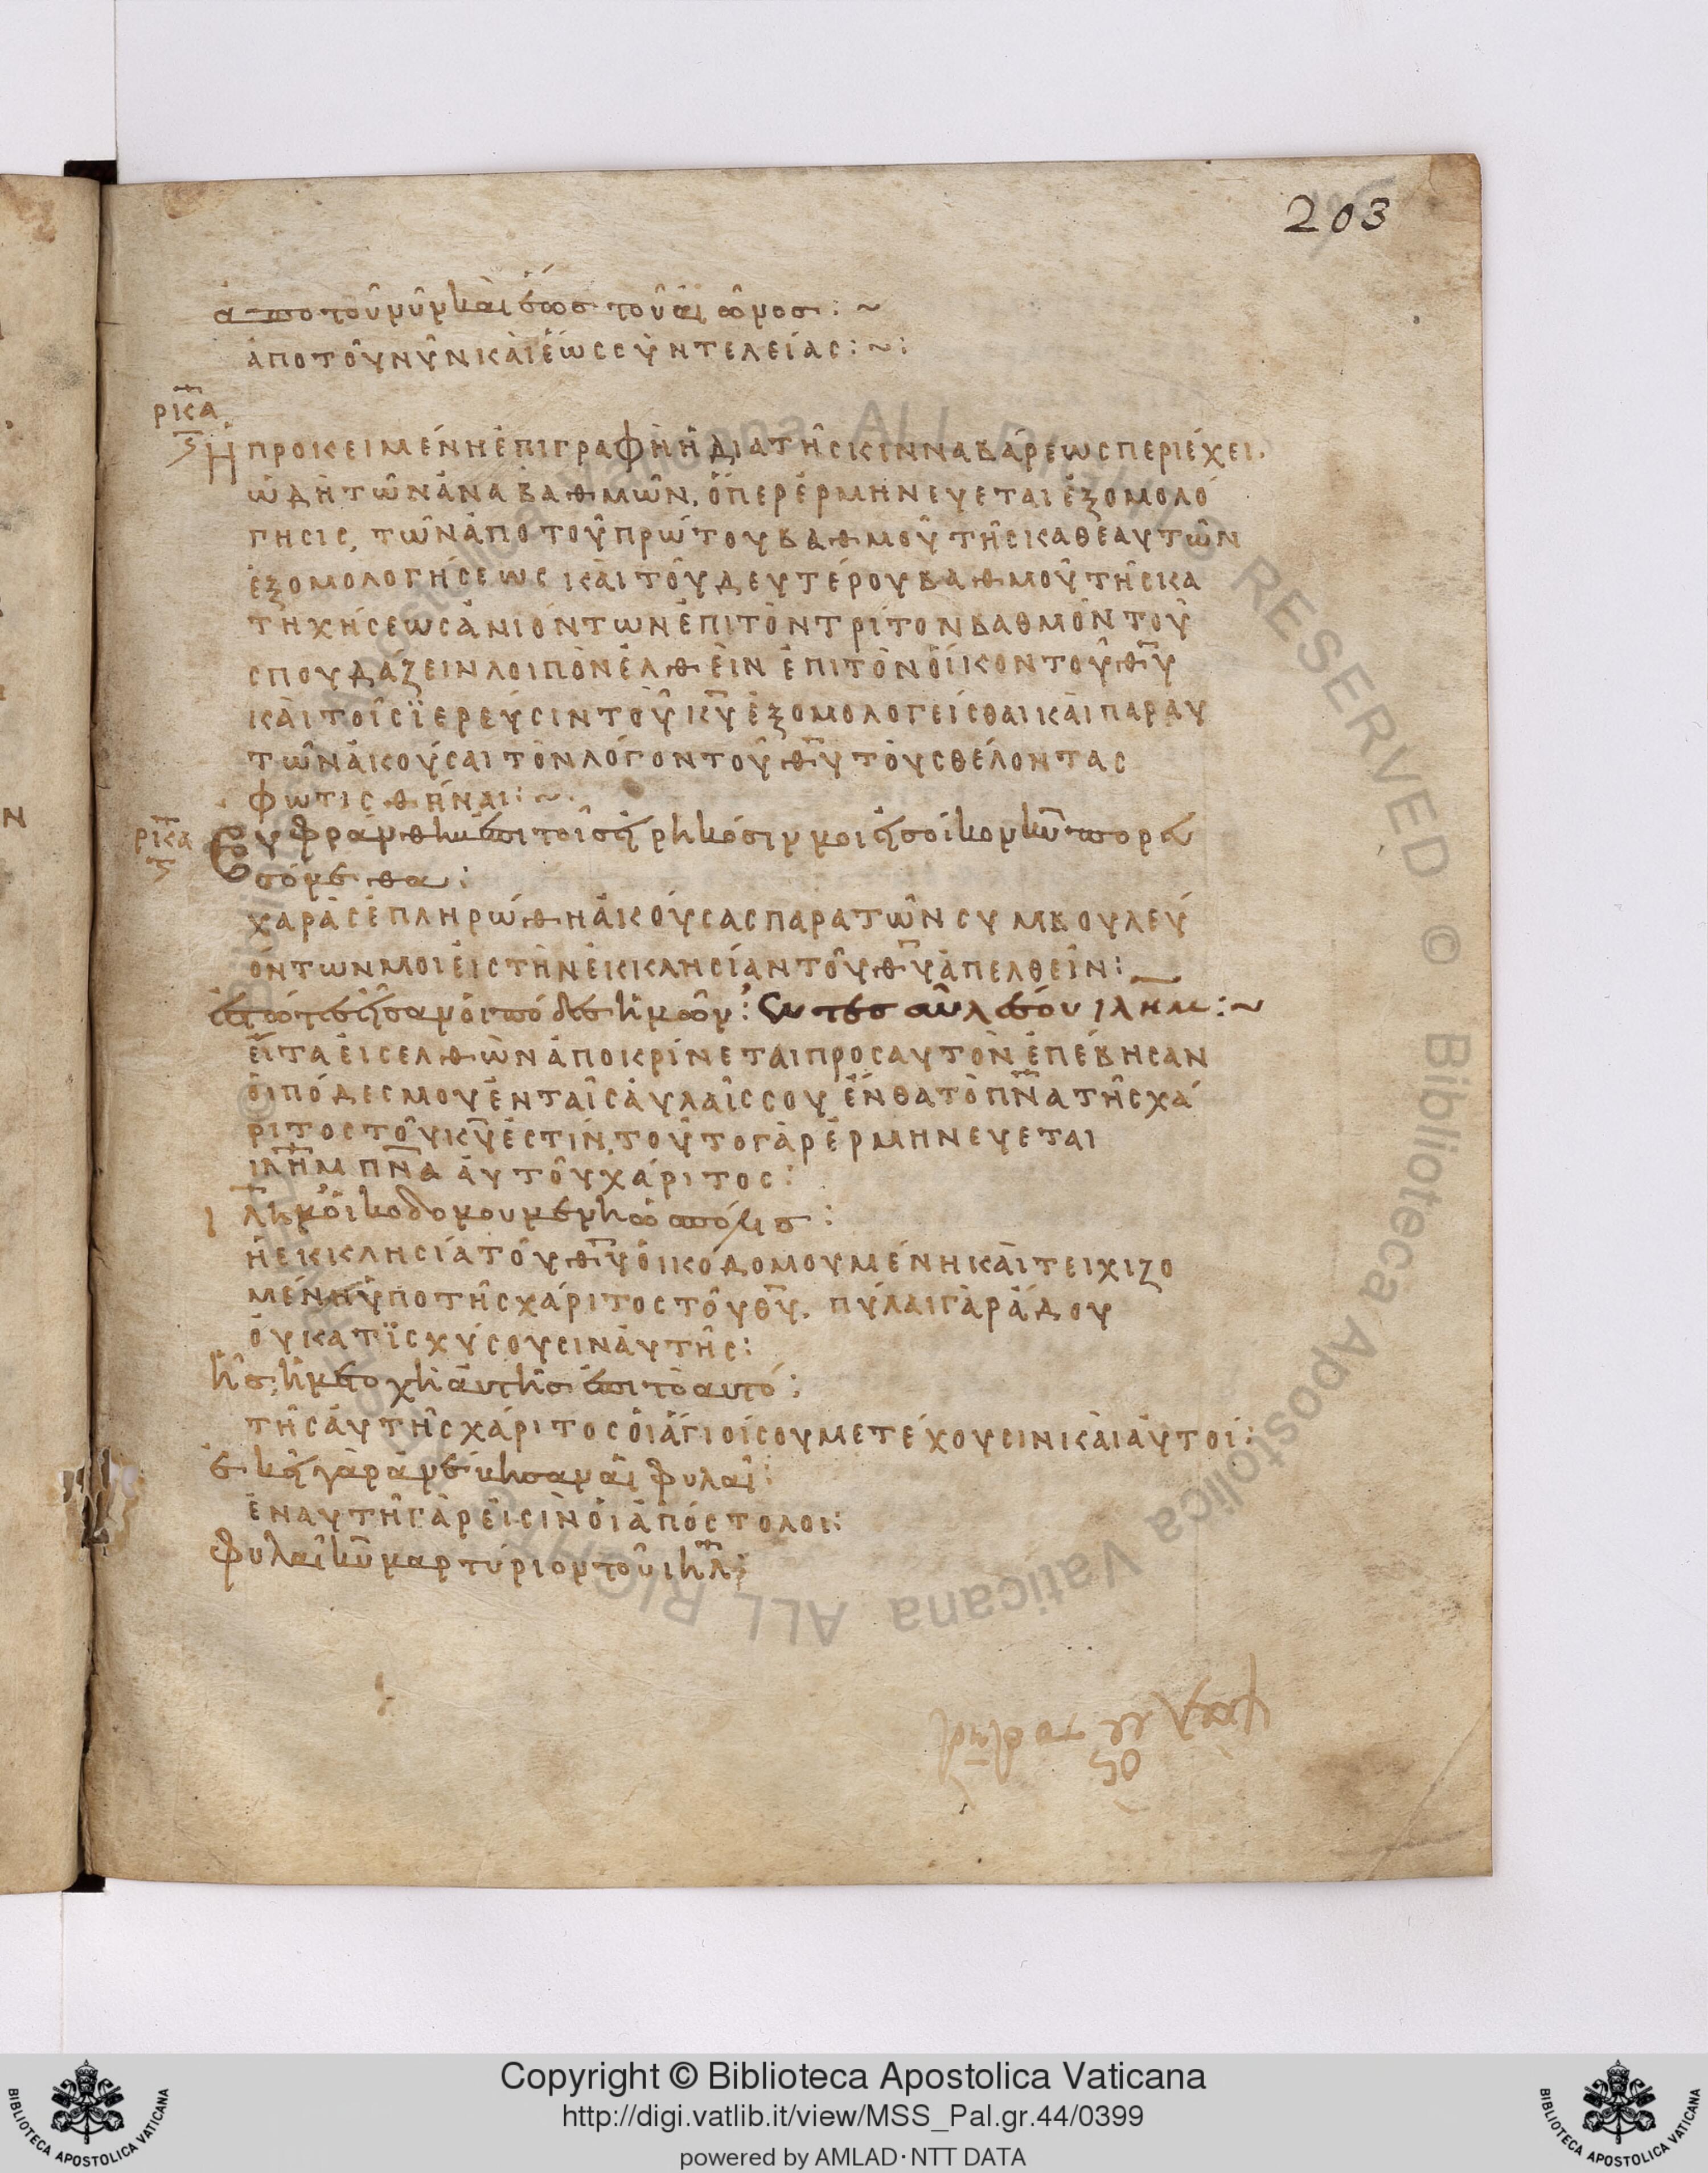 203
ἀπὸ τοῦ νῦν καὶ ἕως τοῦ αἰῶνος : ~
ἀπὸ τοῦ νῦν καὶ ἕως συντελείας : ~ :
ρκα
Ἡ προκειμένη ἐπιγραφὴ ἡ διὰ τῆς κινναβάρεως περιέχει.
ὠδὴ τῶν ἀναβαθμῶν, ὅπερ ἑρμηνεύεται ἐξομολό
γησις, τῶν ἀπὸ τοῦ πρώτου βαθμοῦ τῆς καθ ἑαυτῶν
ἐξομολογήσεως καὶ τοῦ δευτέρου βαθμοῦ τῆς κα
τηχήσεως ἀνιόντων ἐπὶ τὸν τρίτον βαθμὸν τοῦ
σπουδάζειν λοιπὸν ἐλθεῖν ἐπὶ τὸν οἶκον τοῦ θ̅υ̅
καὶ τοῖς ἱερεῦσιν τοῦ κ̅υ̅ ἐξομολογεῖσθαι καὶ παρ αυ
τῶν ἀκοῦσαι τὸν λόγον τοῦ θ̅υ̅ τοὺς θέλοντας
φωτισθῆναι : ~
ρκα
Εὐφράνθην ἐπὶ τοῖς εἰρηκόσιν μοι εἰς οἶκον κ̅υ̅ πορευ
σόμεθα :
χαρᾶς ἐπληρώθη ἀκούσας παρὰ τῶν συμβουλευ
όντων μοι εἰς τὴν ἐκκλησίαν τοῦ θ̅υ̅ ἀπελθεῖν :
ἑστῶτες ἦσαν οἱ πόδες ἡμῶν : ἐν τες αὐλ σου ιλημ : ~
εἶτα εἰσελθὼν ἀποκρίνεται πρὸς αὐτὸν ἐπέβησαν
οἱ πόδες μου ἐν ταῖς αὐλαῖς σου ἔνθα τὸ π̅ν̅α τῆς χά
ριτος τοῦ κ̅υ̅ ἐστίν, τοῦτο γὰρ ἑρμηνεύεται
ιλημ π̅ν̅α αὐτοῦ χάριτος :
ιλημ οἰκοδομουμένη ὡς πόλις :
ἡ ἐκκλησία τοῦ θ̅υ̅ οἰκοδομουμένη καὶ τειχιζο
μένη ὑπὸ τῆς χάριτος τοῦ θ̅υ̅. πύλαι γὰρ ἅδου
οὐ κατισχύσουσιν αὐτῆς :
ἧς ἡ μετοχὴ αὐτῆς ἐπὶ τὸ αυτό :
τῆς αὐτῆς χάριτος οἱ ἅγιοί σου μετέχουσιν καὶ αὐτοί :
ἐκεῖ γὰρ ἀνέβησαν αἱ φυλαί :
ἐν αὐτῇ γάρ εἰσιν οἱ ἀπόστολοι :
φυλαὶ κ̅υ̅ μαρτύριον τοῦ ιηλ :
Copyright © Biblioteca Apostolica Vaticana
http://digi.vatlib.it/view/MSS_Pal.gr.44/0399
powered by AMLAD·NTT DATA